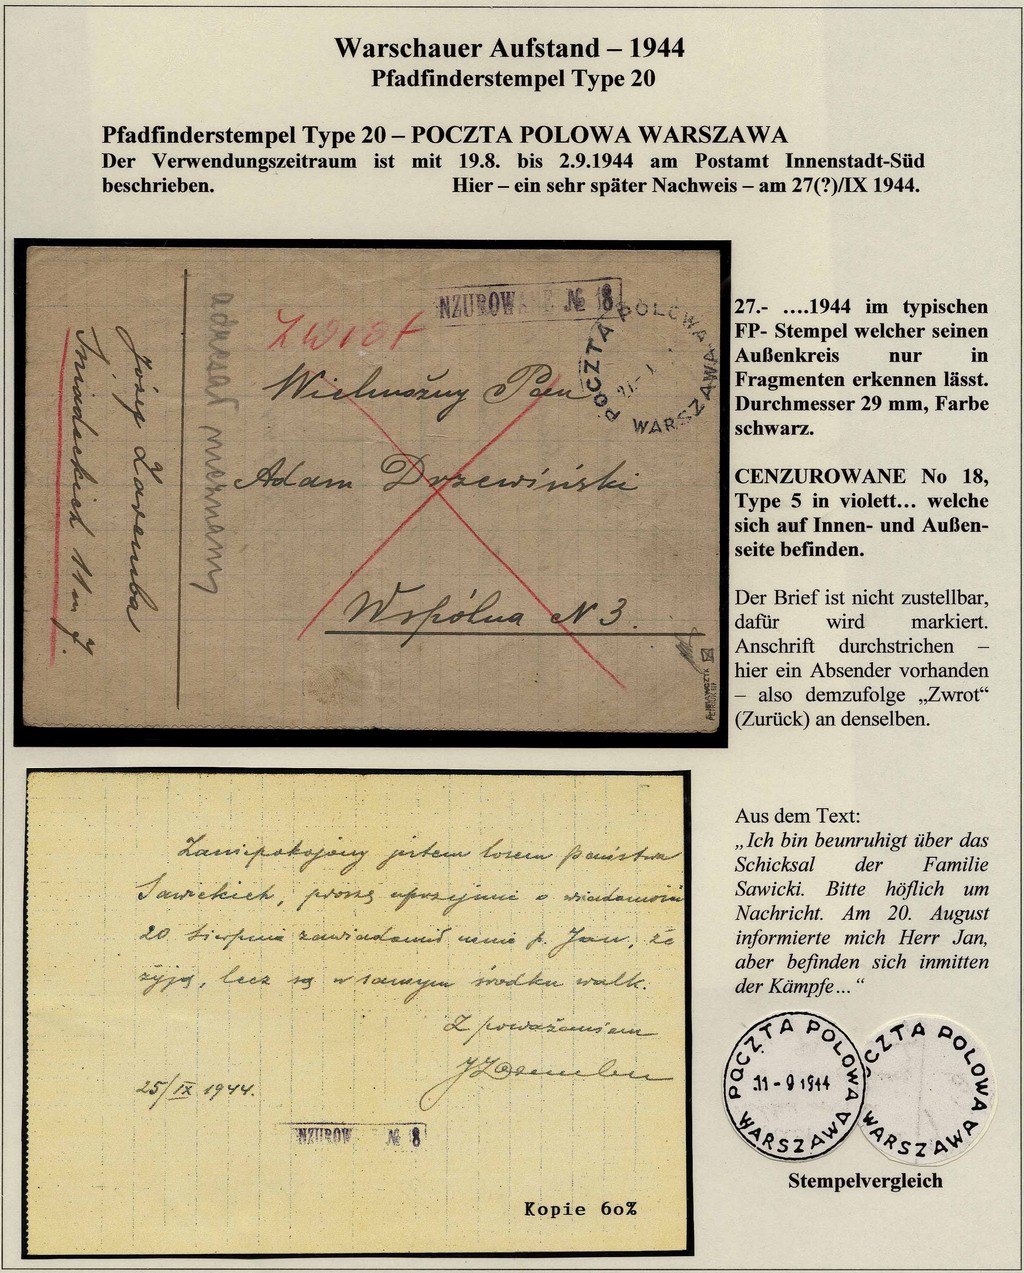 Warschauer Aufstand – 1944
Pfadfinderstempel Type 20
Pfadfinderstempel Type 20 – POCZTA POLOWA WARSZAWA
Der Verwendungszeitraum ist mit 19.8. bis 2.9.1944 am Postamt Innenstadt-Süd
beschrieben. Hier – ein sehr später Nachweis – am 27(?)/IX 1944.
NZUROWANE № 18
POCZTA POLOWA WARSZAWA
Zwrot
adresat nieznany
Józef Zaremba
Śniadeckich 11 m 7.
Wielmożny Pan
Adam Drzewiński
Wspólna N 3.
27.- ….1944 im typischen
FP- Stempel welcher seinen
Außenkreis nur in
Fragmenten erkennen lässt.
Durchmesser 29 mm, Farbe
schwarz.
CENZUROWANE No 18,
Type 5 in violett… welche
sich auf Innen- und Außen-
seite befinden.
Der Brief ist nicht zustellbar,
dafür wird markiert.
Anschrift durchstrichen –
hier ein Absender vorhanden
– also demzufolge „Zwrot“
(Zurück) an denselben.
Zaniepokojony jestem losem Państwa
Sawickich, proszę uprzejmie o wiadomość
20 sierpnia zawiadomił mnie p. Jan, że
żyją, lecz są w samym środku walk.
Z poważaniem
JZaremba
25/IX 1944.
NZUROW № 8
Kopie 60%
Aus dem Text:
„Ich bin beunruhigt über das
Schicksal der Familie
Sawicki. Bitte höflich um
Nachricht. Am 20. August
informierte mich Herr Jan,
aber befinden sich inmitten
der Kämpfe…“
POCZTA POLOWA WARSZAWA
11 - 9 1944
CZTA POLOWA WARSZAWA
Stempelvergleich